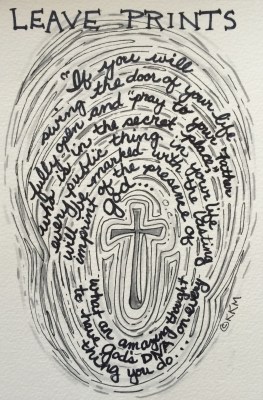 LEAVE PRINTS
"If you will
swing the door of your life
fully open and "pray to your Father
who is in the secret place"
every public thing in your life
will be marked with the lasting
imprint of the presence of
God...
what an amazing thought
to have God's DNA on every
thing you do....
©KRM